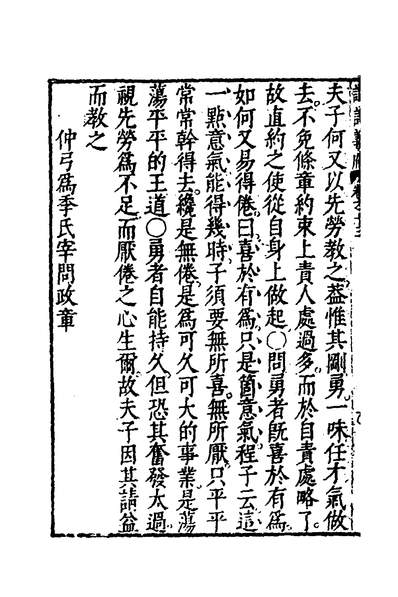 夫子何又以先勞教之葢惟其剛勇一味任才氣做
去不免條章約束上責人處過多而於自責處略了
故直約之使從自身上做起○問勇者旣喜於有爲
如何又易得倦曰喜於有爲只是箇意氣程子云這
一㸃意氣能得幾時子須要無所喜無所厭只平平
常常幹得去纔是無倦是爲可久可大的事業是蕩
蕩平平的王道○勇者自能持久但恐其奮發太過
視先勞爲不足而厭倦之心生爾故夫子因其請益
而敎之
仲弓爲季氏宰問政章